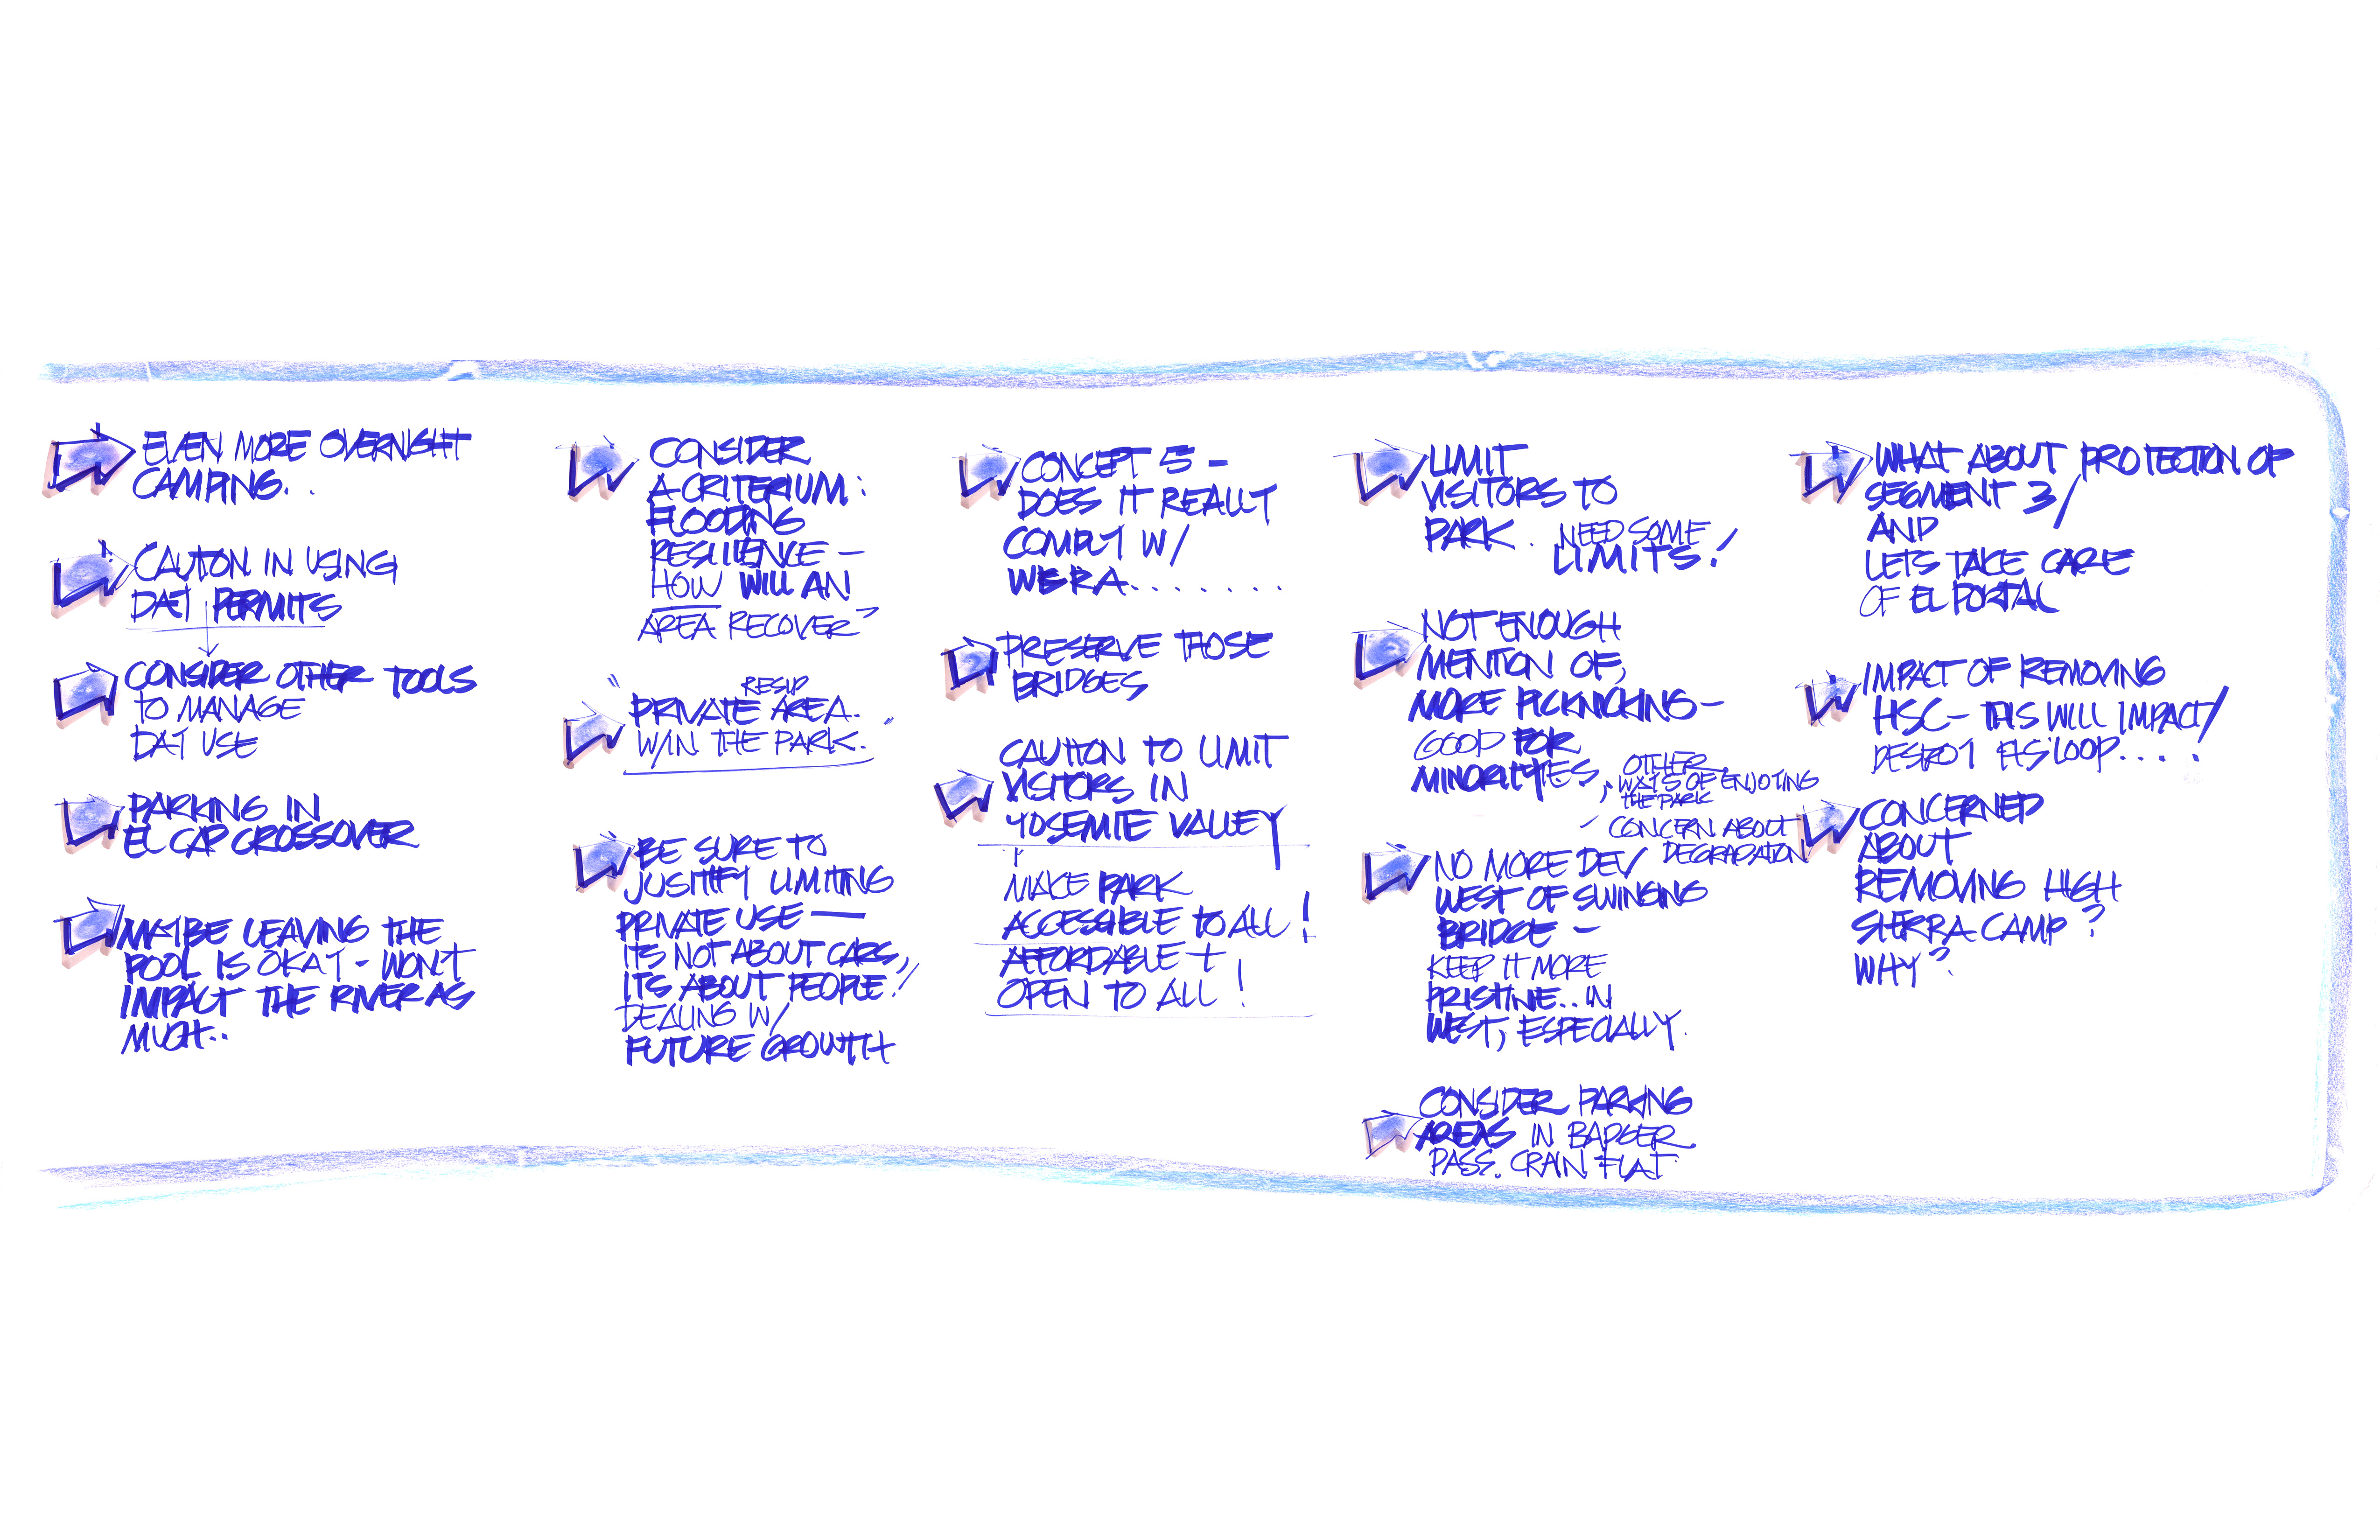 EVEN MORE OVERNIGHT
CAMPING..
CAUTION IN USING
DAY PERMITS
CONSIDER OTHER TOOLS
TO MANAGE
DAY USE
PARKING IN
EL CAP CROSSOVER
MAYBE LEAVING THE
POOL IS OKAY - WON'T
IMPACT THE RIVER AS
MUCH..
CONSIDER
A CRITERIUM:
FLOODING
RESILIENCE -
HOW WILL AN
AREA RECOVER?
RESID
"PRIVATE AREA.
W/IN THE PARK."
BE SURE TO
JUSTIFY LIMITING
PRIVATE USE —
ITS NOT ABOUT CARS,
ITS ABOUT PEOPLE!!
DEALING W/
FUTURE GROWTH
CONCEPT 5 -
DOES IT REALLY
COMPLY W/
WSRA.......
PRESERVE THOSE
BRIDGES
CAUTION TO LIMIT
VISITORS IN
YOSEMITE VALLEY
MAKE PARK
ACCESSIBLE TO ALL!
AFFORDABLE +
OPEN TO ALL!
LIMIT
VISITORS TO
PARK. NEED SOME
LIMITS!
NOT ENOUGH
MENTION OF,
MORE PICKNICKING -
GOOD FOR
MINORITYIES, OTHER
WAYS OF ENJOYING
THE PARK
- CONCERN ABOUT
DEGRADATION
NO MORE DEV
WEST OF SWINGING
BRIDGE -
KEEP IT MORE
PRISTINE.. IN
WEST, ESPECIALLY.
CONSIDER PARKING
AREAS IN BADGER
PASS. CRAIN FLAT
WHAT ABOUT PROTECTION OF
SEGMENT 3/
AND
LETS TAKE CARE
OF EL PORTAL
IMPACT OF REMOVING
HSC - THIS WILL IMPACT/
DESTROY HS LOOP....!
CONCERNED
ABOUT
REMOVING HIGH
SIERRA CAMP?
WHY?